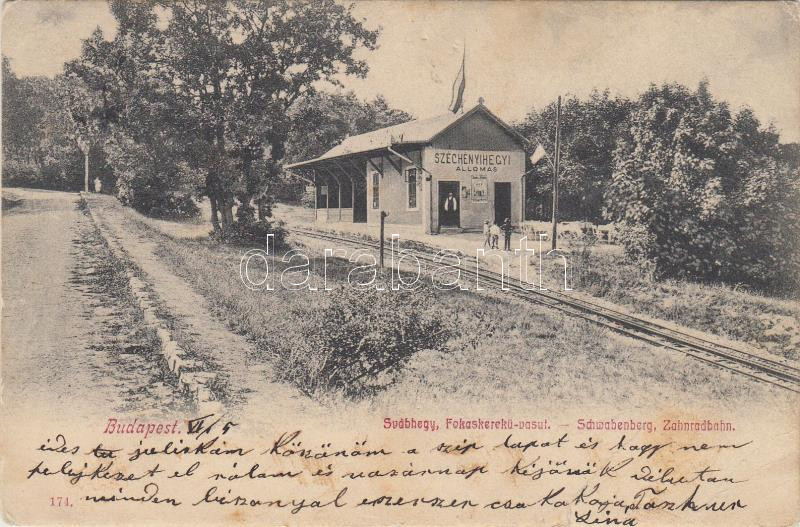 SZÉCHENYIHEGYI
ÁLLOMÁS
darabanth
Budapest. VI/5
Svábhegy, Fokaskerekű-vasut. — Schwabenberg, Zahnradbahn.
édes julískám Köszönöm a szip lapat és hagy nem
felejkezet el rólam és vasárnap kijövök délután
minden bizonyal ezerszer csokal
174.